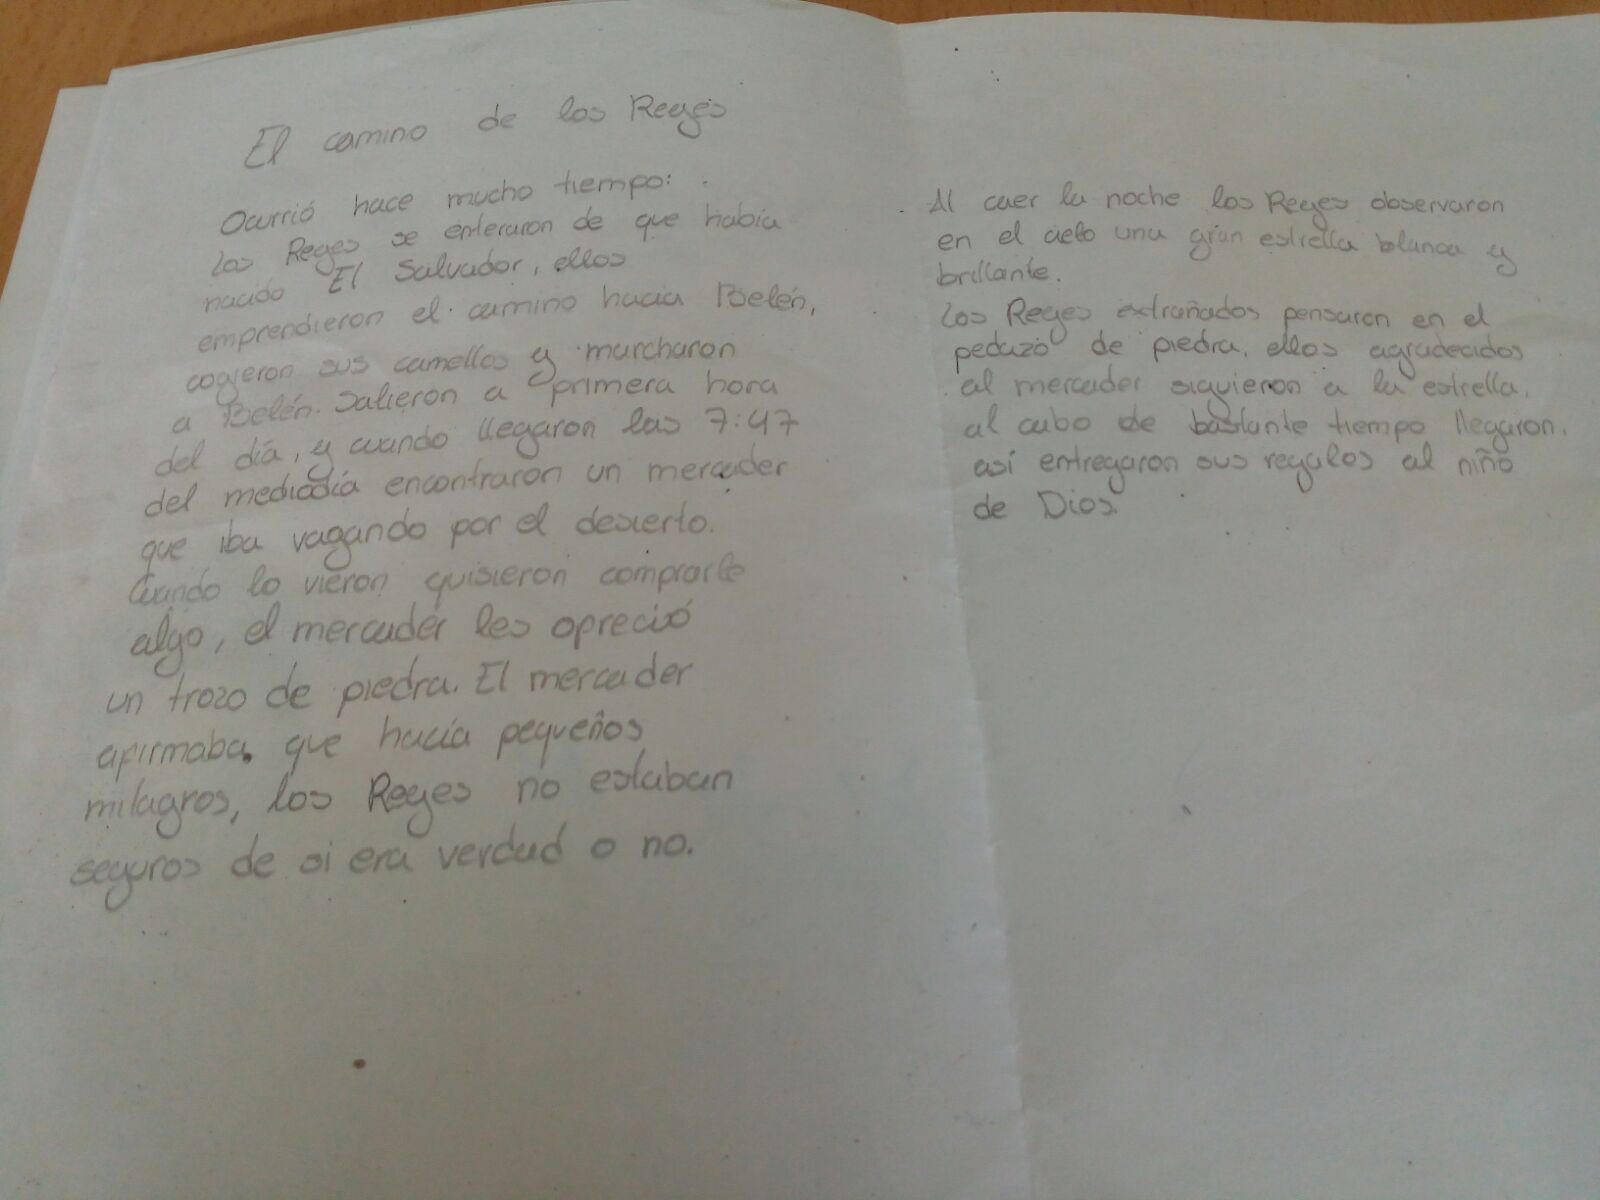 El camino de los Reyes
Ocurrió hace mucho tiempo:
Los Reyes se enteraron de que había
nacido El Salvador, ellos
emprendieron el camino hacia Belén,
cogieron sus camellos y marcharon
a Belén. Salieron a primera hora
del día, y cuando llegaron las 7:47
del mediodía encontraron un mercader
que iba vagando por el desierto.
Cuando lo vieron quisieron comprarle
algo, el mercader les opreció
un trozo de piedra. El mercader
afirmaba que hacía pequeños
milagros, los Reyes no estaban
seguros de si era verdad o no.
Al caer la noche los Reyes observaron
en el cielo una gran estrella blanca y
brillante.
Los Reyes extrañados pensaron en el
pedazo de piedra, ellos agradecidos
al mercader siguieron a la estrella,
al cabo de bastante tiempo llegaron.
así entregaron sus regalos al niño
de Dios.